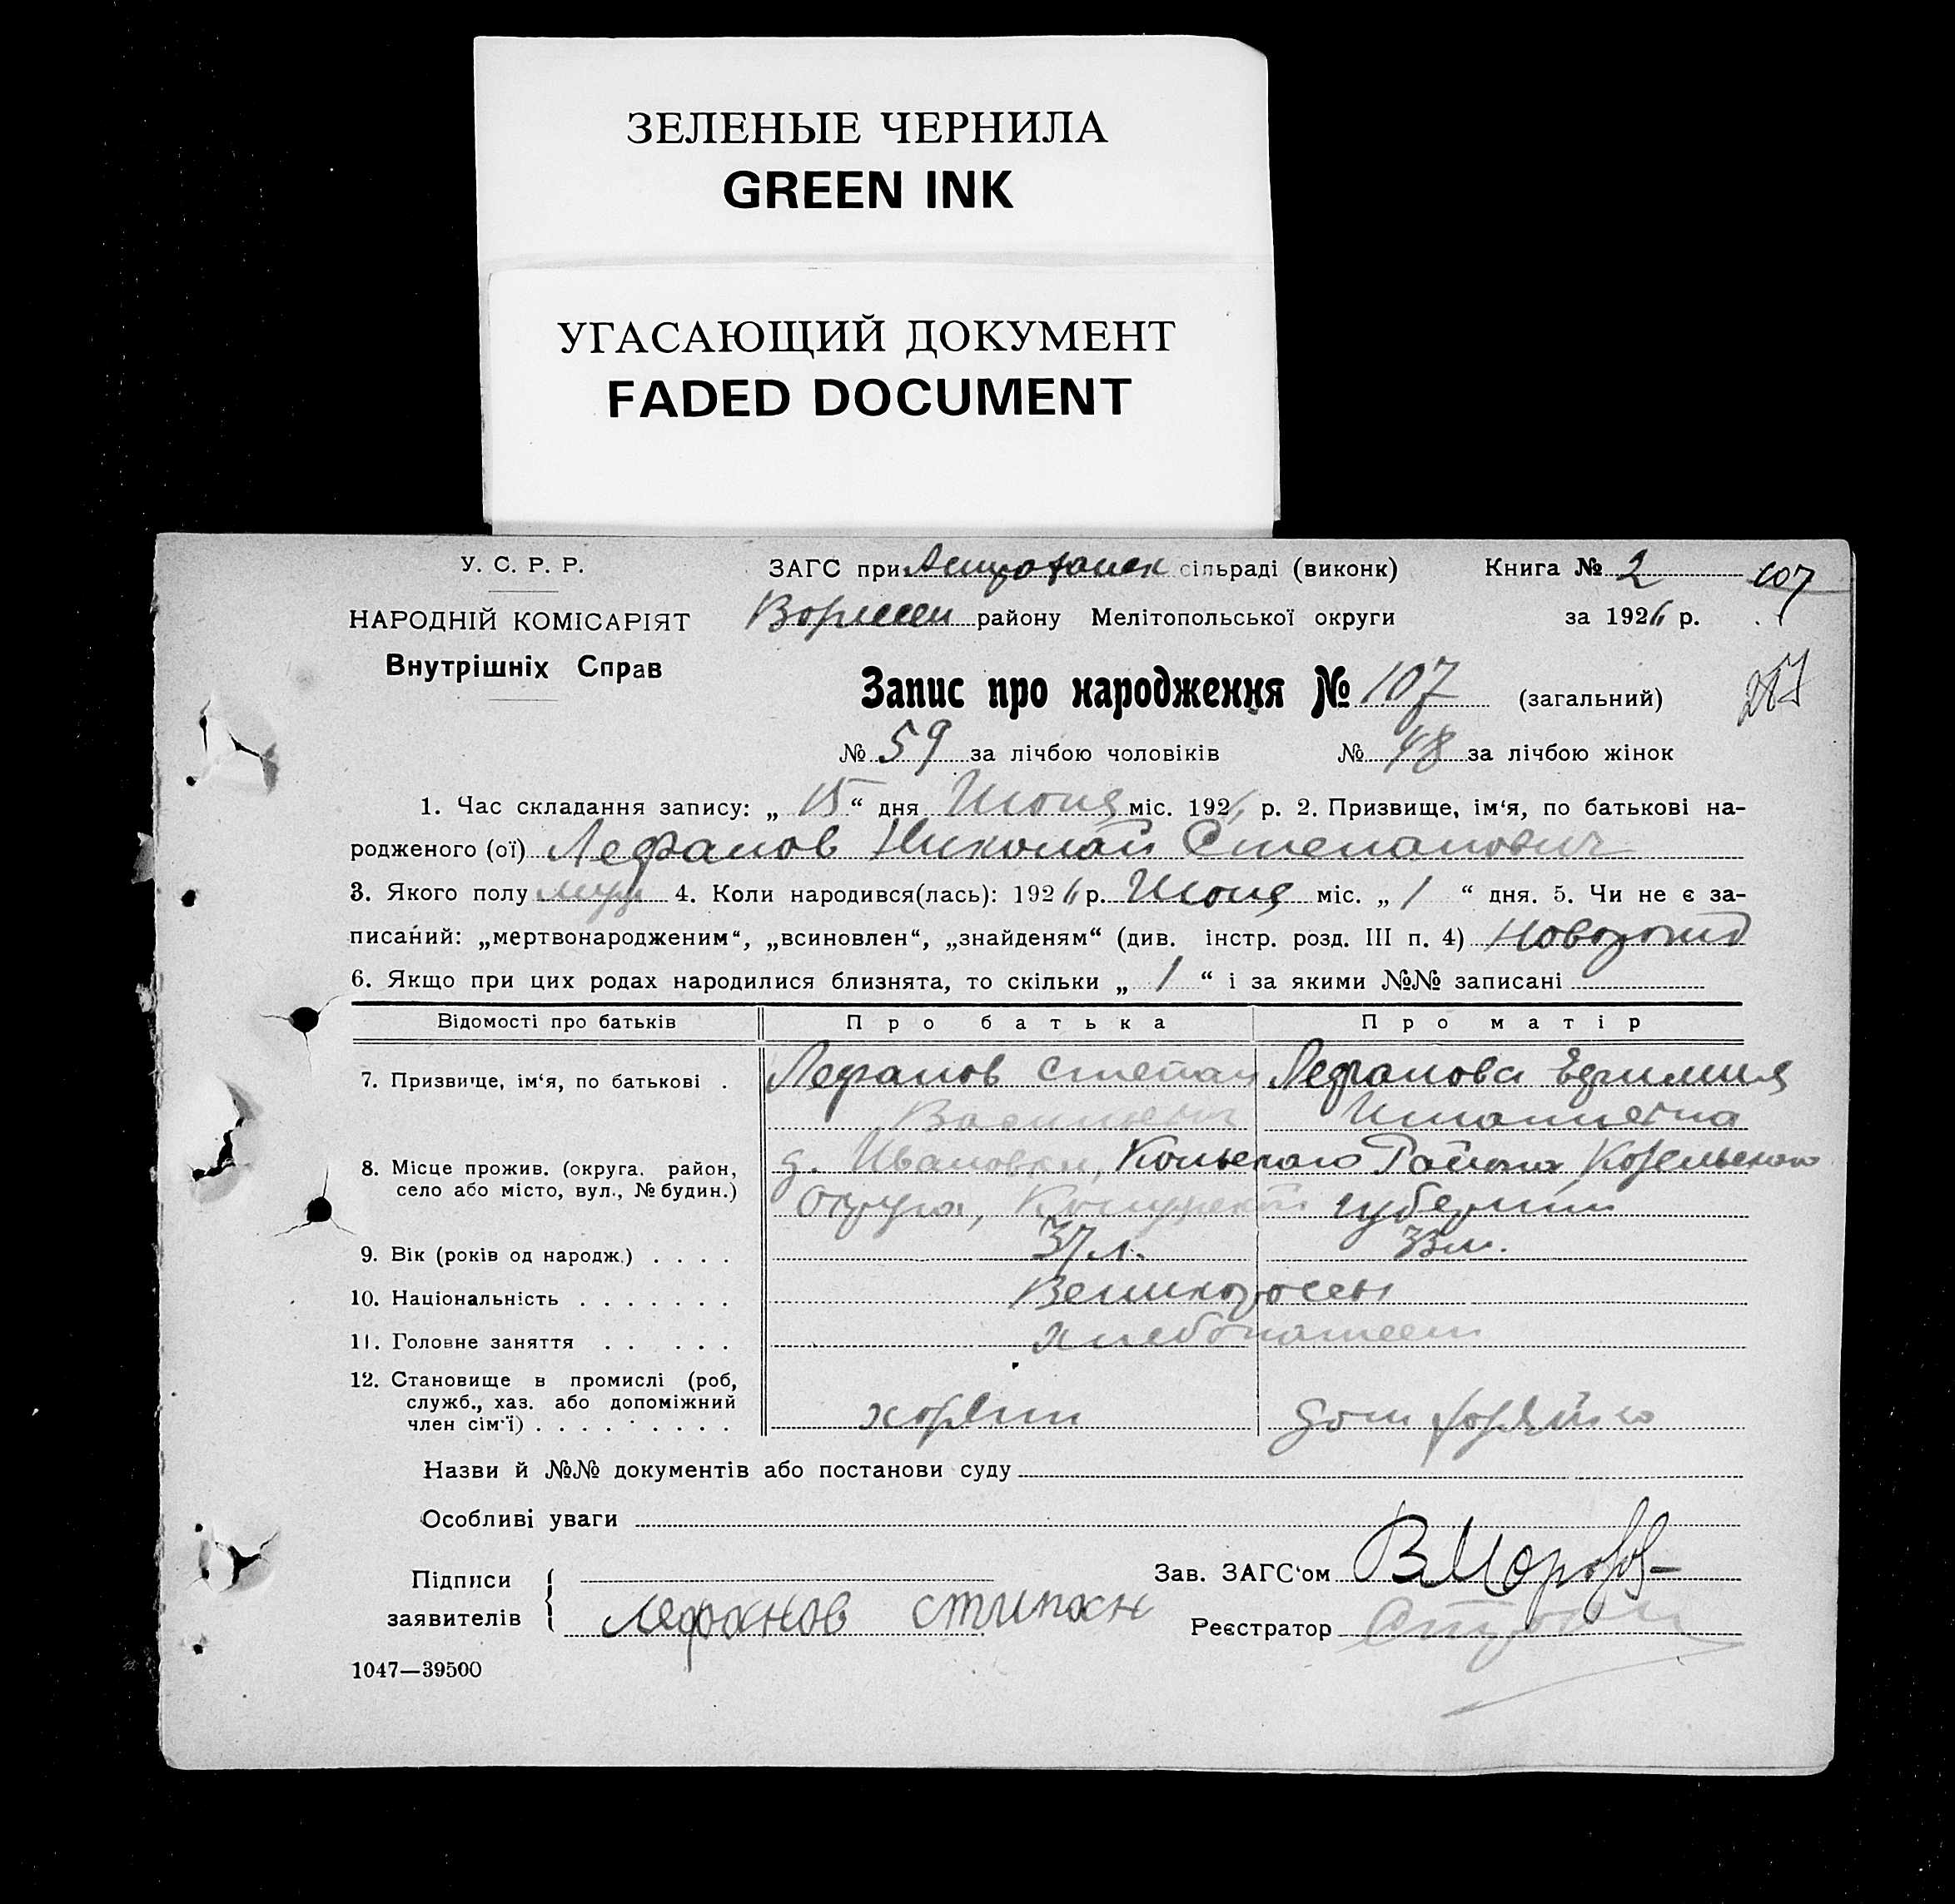 ЗЕЛЕНЫЕ ЧЕРНИЛА
GREEN INK
УГАСАЮЩИЙ ДОКУМЕНТ
FADED DOCUMENT
У. С. Р. Р.
НАРОДНІЙ КОМІСАРІЯТ
Внутрішніх Справ
ЗАГС при Астраханск сільраді (виконк)
Книга № 2
107
району Мелітопольської округи
за 1926 р.
Запис про народження № 107 (загальний)
№ 59 за лічбою чоловіків № 48 за лічбою жінок
1. Час складання запису: „ 15 “ дня Июня міс. 1926 р. 2. Призвище, ім‘я, по батькові на-
родженого (ої) Лефанов Николай Степанович
3. Якого полу муж 4. Коли народився(лась): 1926 р. Июня міс. „ 1 “ дня. 5. Чи не є за-
писаний: „мертвонародженим“, „всиновлен“, „знайденям“ (див. інстр. розд. III п. 4)
6. Якщо при цих родах народилися близнята, то скільки „ 1 “ і за якими №№ записані
Відомості про батьків Про батька Про матір
7. Призвище, ім‘я, по батькові . Лефанов Степан Лефанова Ефимия
Васильевич
8. Місце прожив. (округа. район,
село або місто, вул., № будин.)
д. Ивановки, Района Козельского
Округа, губернии
9. Вік (років од народж.) . . . . 37 л. 33 л.
10. Національність . . . . . . . Великороссы
11. Головне заняття . . . . . . Хлебопашест
12. Становище в промислі (роб,
служб., хаз. або допоміжний
член сім‘ї) . . . . . . . . . хозяин дом хозяйка
Назви й №№ документів або постанови суду
Особливі уваги
Підписи
заявителів
Лефанов Стипан
Зав. ЗАГС‘ом В Морозов
Реєстратор
1047—39500